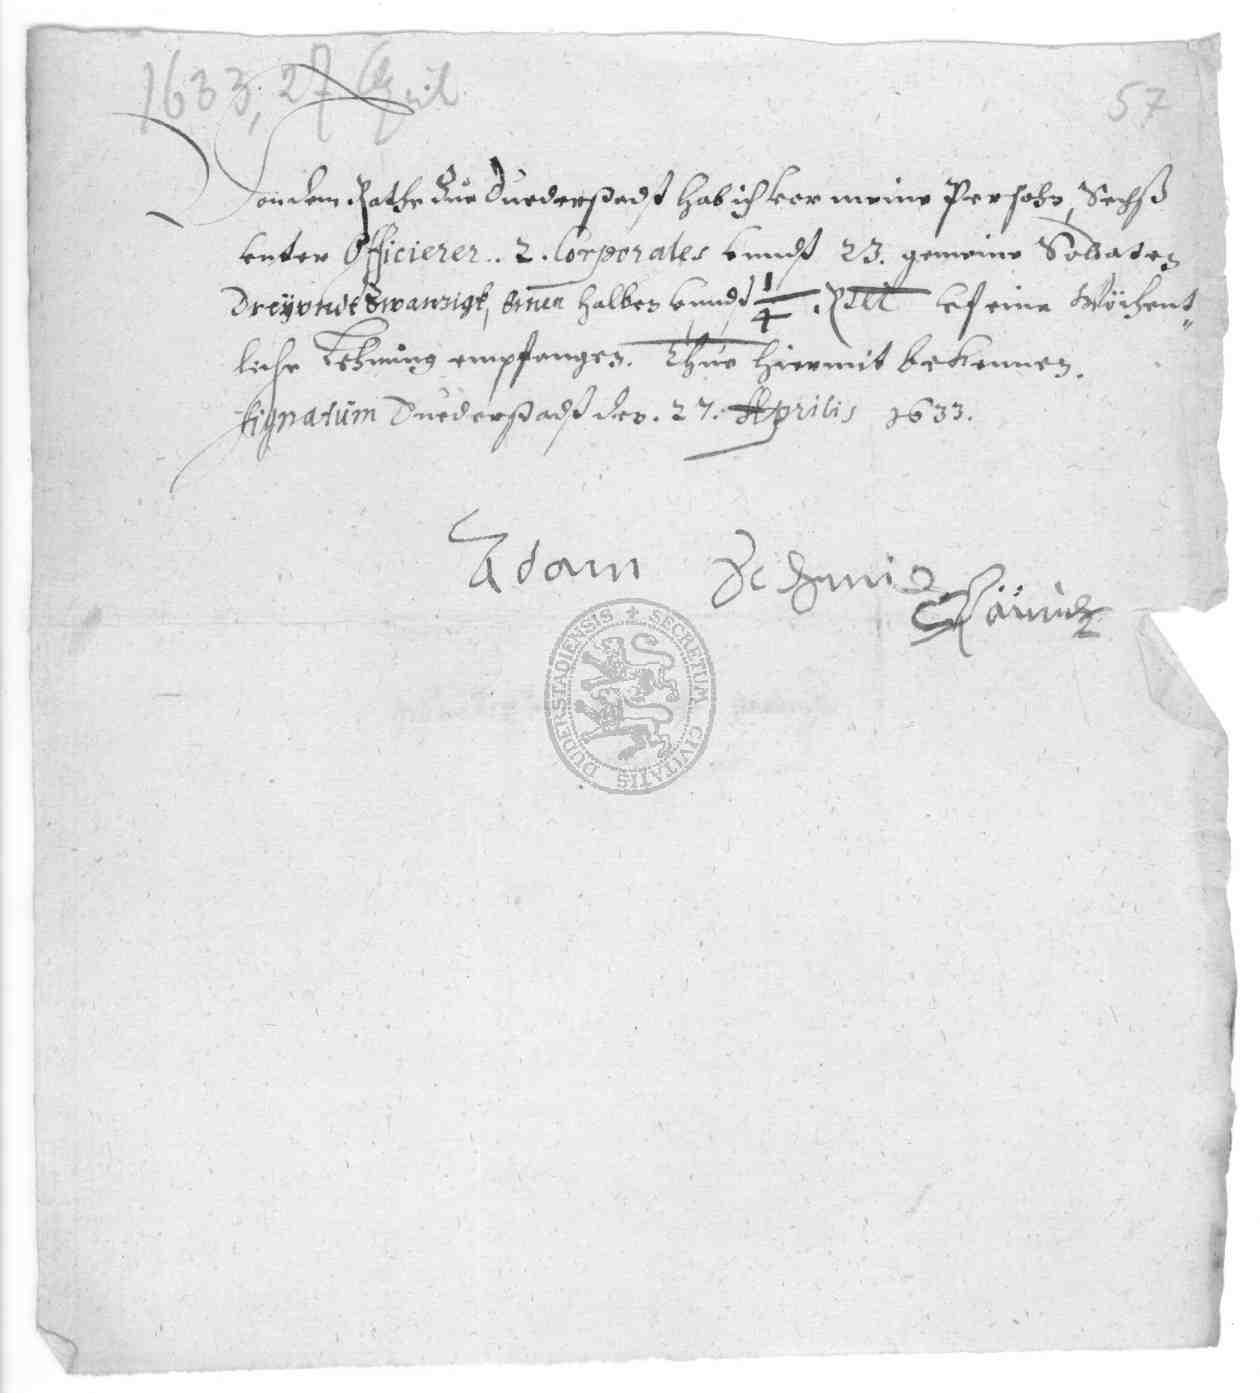 1633, 27 April
57
Von dem Rathe Zue Duederstadt hab ich vor meine Persohn, Sechß
vnter Officierer.. 2. Corporales vnndt 23. gemeine Soldaten
Dreÿvndt Zwanzigk, Einen halben vnndt 1/4 . Rtll vf eine Wöchent„
liche Lehnung empfangen. Thue hiermit bekennen.
Signatum Duederstadt den. 27. Aprilis 1633.
Adam Schmid
SECRETUM CIVITATIS DUDERSTADIENSIS